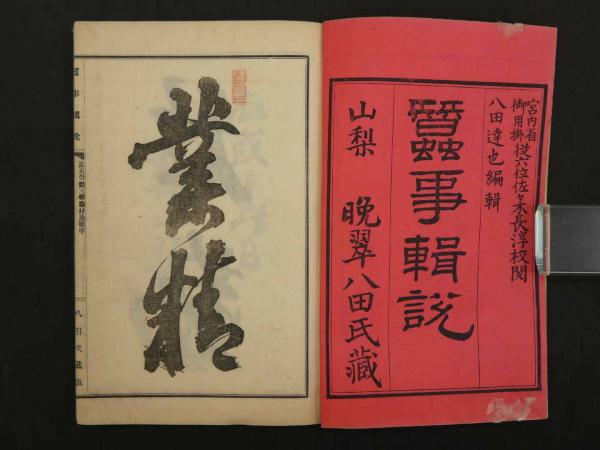 宮内省
御用掛従六位佐々木長淳校閲
八田達也編輯
蠶事輯説
山梨 晩翠八田氏藏
業精
蠶事輯説
八田氏蔵版